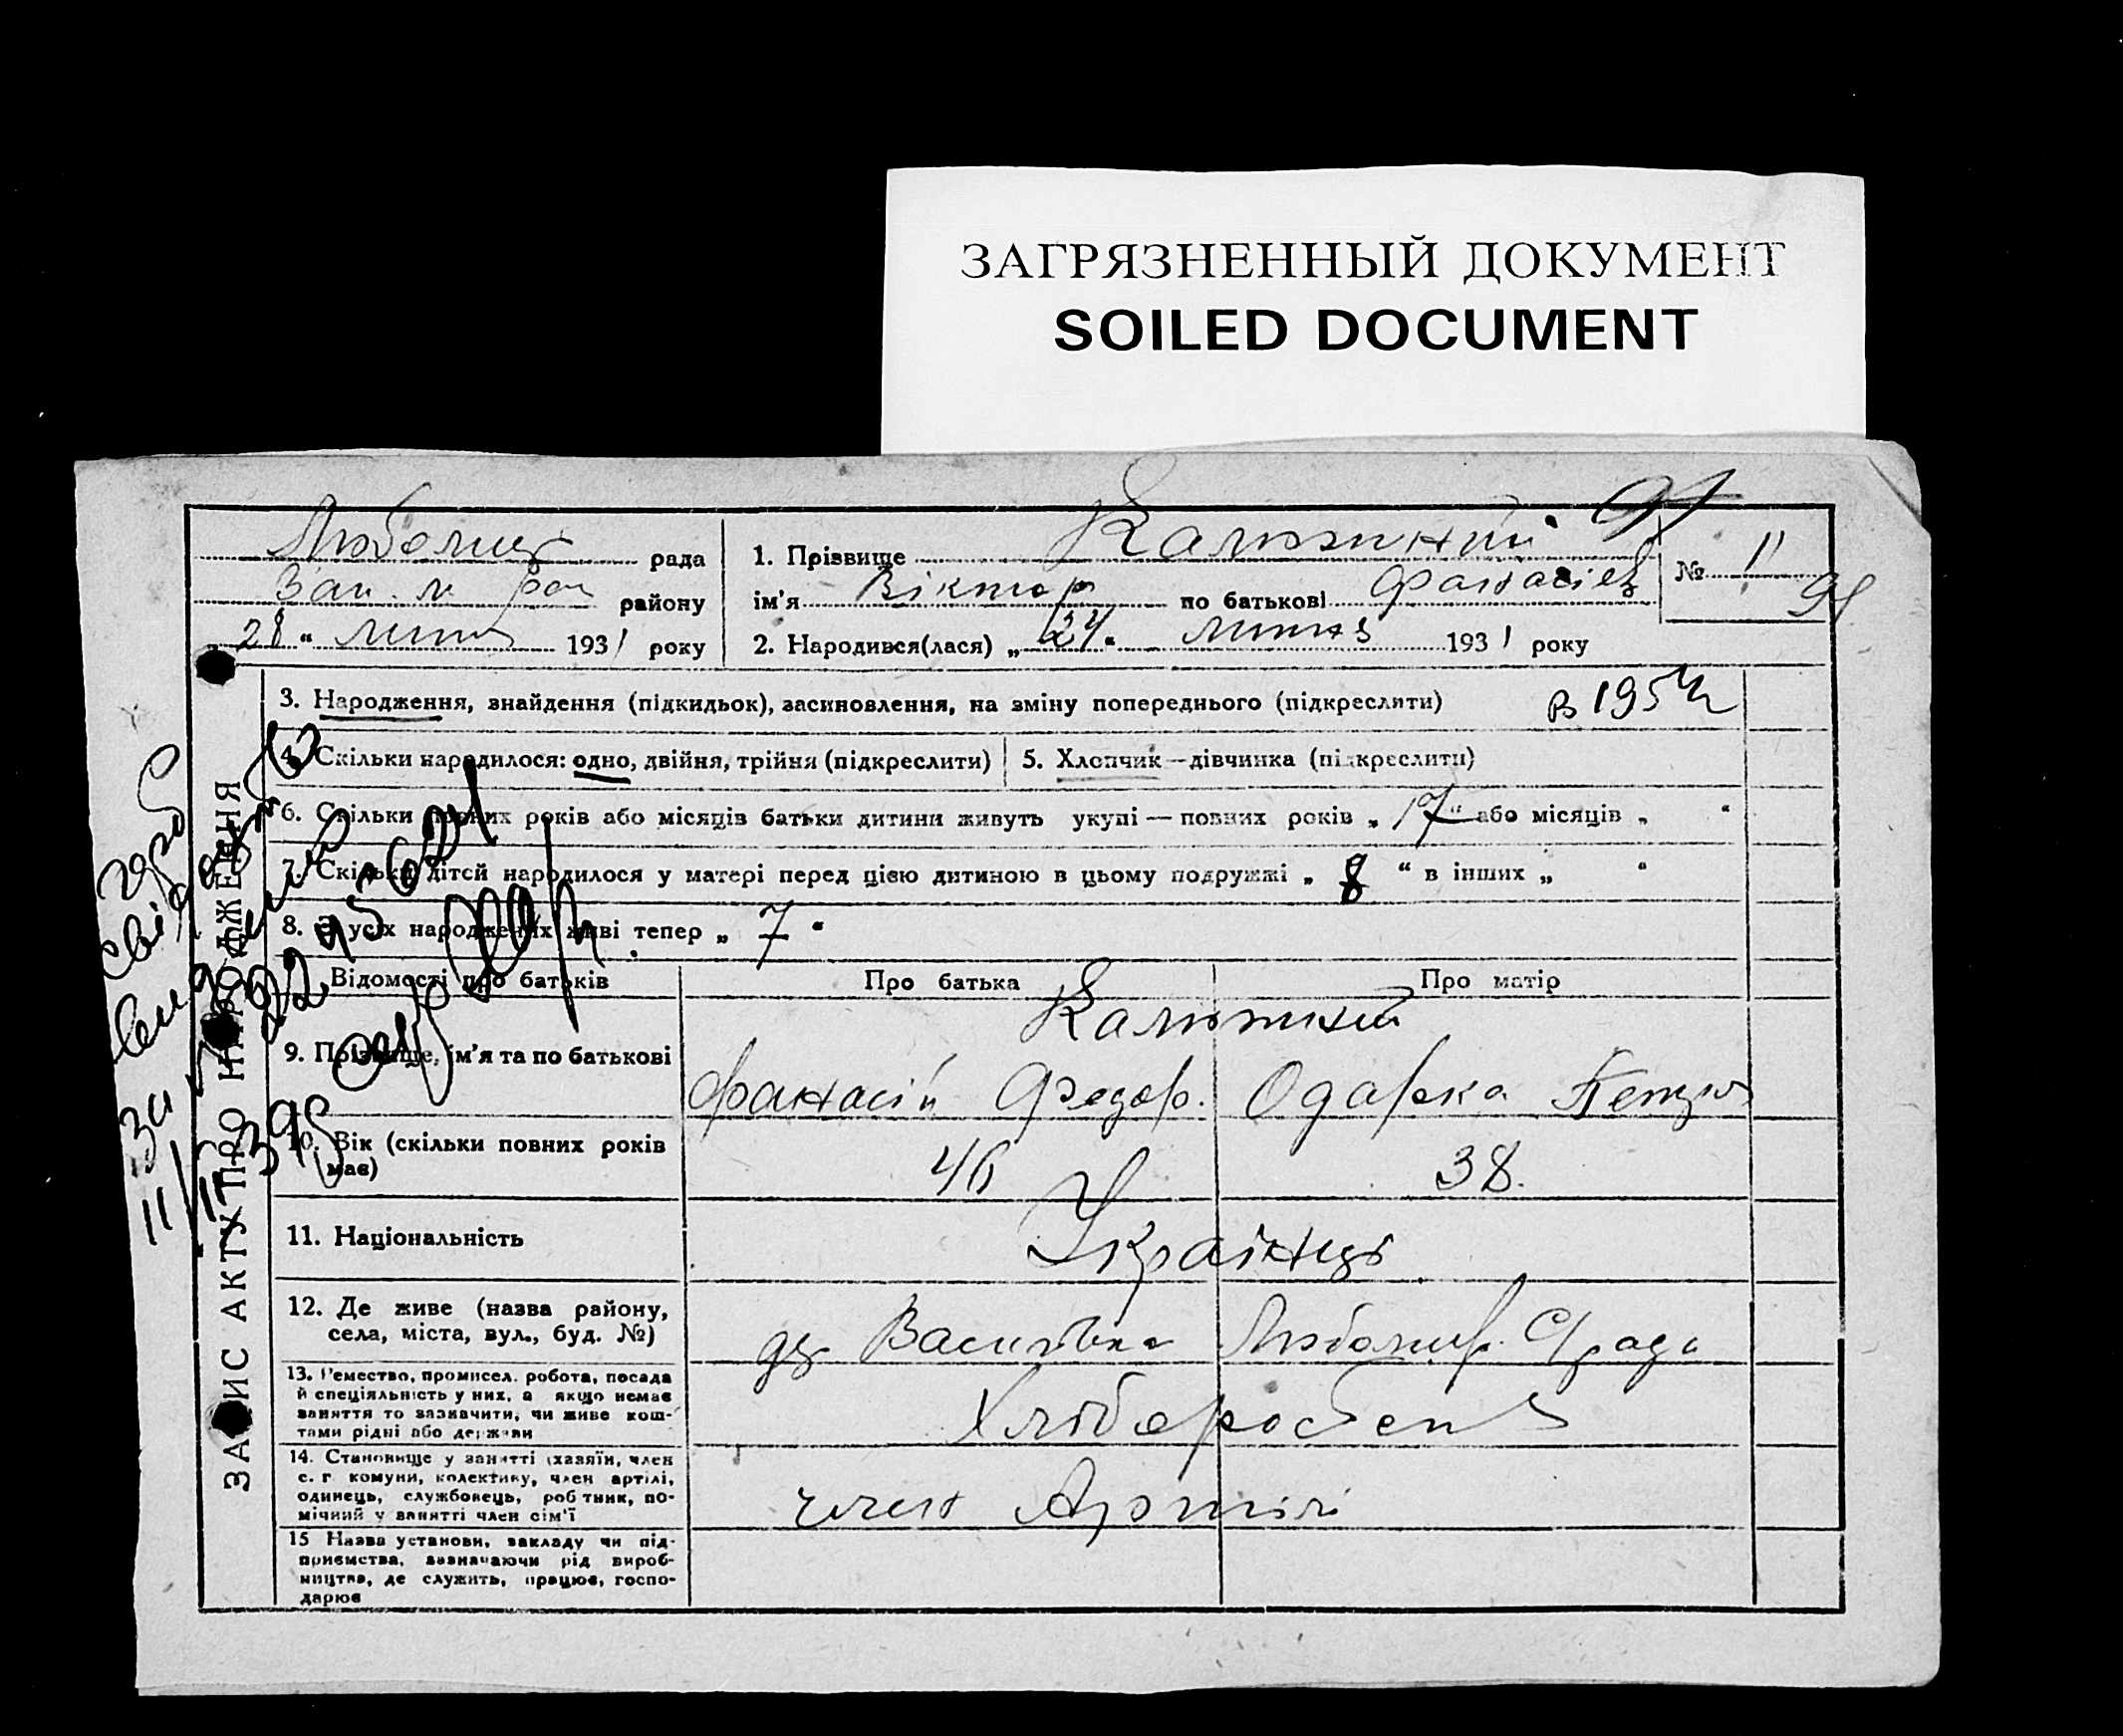 ЗАГРЯЗНЕННЫЙ ДОКУМЕНТ
SOILED DOCUMENT
рада
району
"28" 1931 року
1. Прізвище Калюжний
ім'я Віктор по батькові
№ 11
2. Народився(лася) „24" 1931 року
ЗАПИС АКТУ ПРО НАРОДЖЕННЯ
3. Народження, знайдення (підкидьок), засиновлення, на зміну попереднього (підкреслити)
4. Скільки народилося: одно, двійня, трійня (підкреслити)
5. Хлопчик—дівчинка (підкреслити)
6. Скільки повних років або місяців батьки дитини живуть укупі — повних років „17" або місяців „ "
7. Скільки дітей народилося у матері перед цією дитиною в цьому подружжі „8" в інших „ "
8. З усіх народжених живі тепер „7"
Відомості про батьків
Про батька
Про матір
9. Прізвище, ім'я та по батькові
Калюжний
Фанасій Федор.
Одарка
10. Вік (скільки повних років має)
46
38.
11. Національність
Українці
12. Де живе (назва району,
села, міста, вул., буд. №)
Василівка
13. Ремество, промисел. робота, посада
й спеціяльність у них, а якщо немає
заняття то зазначити, чи живе кош-
тами рідні або держави
Хлібороб
14. Становище у занятті (хазяїн, член
с. г. комуни, колективу, член артілі,
одинець, службовець, робітник, по-
мічний у занятті член сім'ї
член Артілі
15 Назва установи, закладу чи під-
приємства, зазначаючи рід вироб-
ництва, де служить, працює, госпо-
дарює